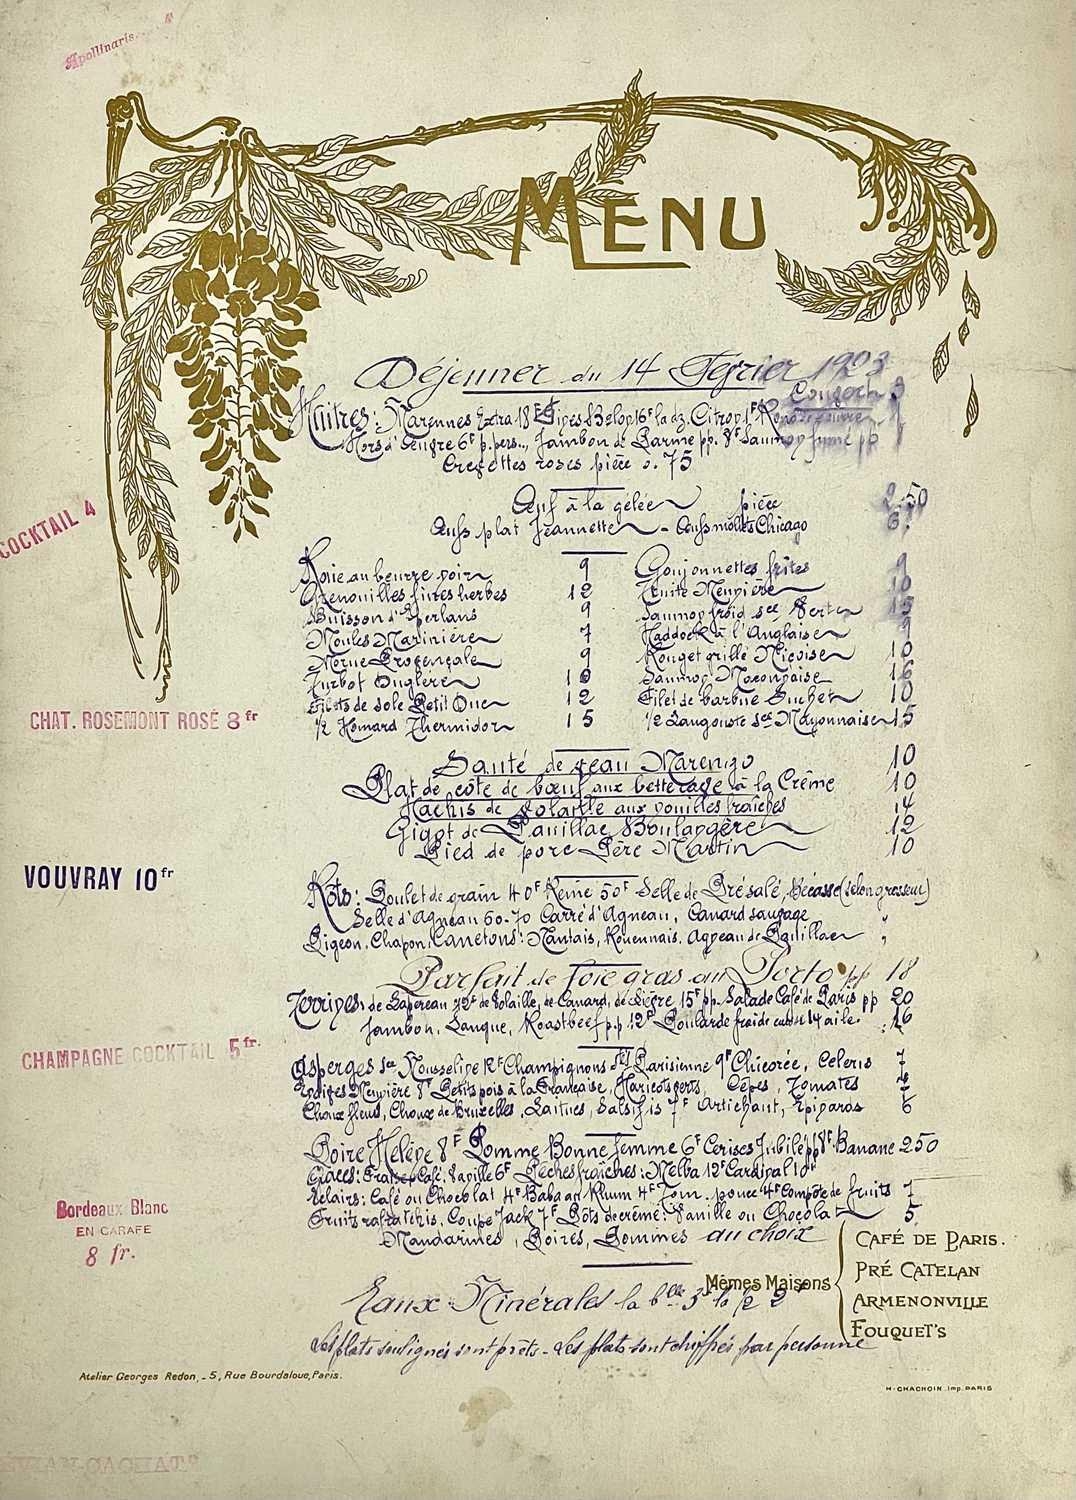 Apollinaris
MENU
Déjeuner du 14 Février 1923
Huitres: Marennes Extra 18F 16F la dz. Citron 1F
Hors d'œuvre 6F p.pers., Jambon de Parme pp. 8F Saumon fumé pp
Crevettes roses pièce 0.75
Œuf à la gelée pièce 2.50
Œufs plat Jeannette - Œufs mollets Chicago 6
COCKTAIL 4
Raie au beurre noir 9 Goujonnettes frites 9
Grenouilles fines herbes 12 Truite Meunière 10
Buisson d'Eperlans 9 Saumon froid sce Verte 15
Moules Marinière 7 Haddock à l'Anglaise 9
Morue Provençale 9 Rouget grillé Niçoise 10
Turbot Dugléré 10 Saumon 16
Filets de sole Petit Duc 12 Filet de barbue Suchet 10
1/2 Homard Thermidor 15 1/2 Langouste sce Mayonnaise 15
CHAT. ROSEMONT ROSÉ 8 fr
Sauté de veau Marengo 10
Plat de côte de bœuf aux betterave à la Crême 10
Hachis de Volaille aux nouilles fraîches 14
Gigot de Pauillac Boulangère 12
Pied de porc Père Martin 10
VOUVRAY 10 fr
Rôts: Poulet de grain 40F Reine 50F Selle de Présalé, Bécasse (selon grosseur)
Selle d'Agneau 60-70 Carré d'Agneau, Canard sauvage
Pigeon, Chapon, Canetons: Nantais, Rouennais. Agneau de Pauillac "
Parfait de foie gras au Porto pp 18
Terrines: de Lapereau 12F de Volaille, de Canard, de Lièvre 15F pp. Salade Café de Paris pp 20
Jambon, Langue, Roastbeef p.p 12F Poularde froide 14 aile 16
CHAMPAGNE COCKTAIL 5 fr.
Asperges sce Mousseline 12F Champignons Parisienne 9F Chicorée, Celeris 7
Meunière 8F Petits pois à la Française, Haricots verts, Cèpes, Tomates
Choux fleur, Choux de Bruxelles, Laitues, Salsifis 7F Artichaut, Epinards 6
Poire Hélène 8F Pomme Bonne femme 6F Cerises Jubilé pp 8F Banane 2 50
Glaces: Fraise, Café, Vanille 6F Pêches fraîches: Melba 12F Cardinal 10F
Eclairs: Café ou Chocolat 4F Baba au Rhum 4F 4F Compôte de fruits 7
Fruits rafraichis, Coupe Jack 7F Pots de crème: Vanille ou Chocolat 5
Mandarines, Poires, Pommes au choix
Bordeaux Blanc
EN CARAFE
8 fr.
Eaux Minérales la blle 3F la 1/2 2F
Les plats soulignés sont prêts - Les plats sont chiffrés par personne
Mêmes Maisons
CAFÉ DE PARIS.
PRÉ CATELAN
ARMENONVILLE
FOUQUET'S
Atelier Georges Redon, - 5, Rue Bourdaloue, Paris.
H. CHACHOIN Imp. PARIS